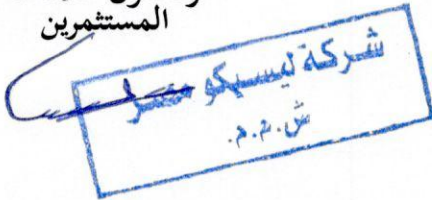 المستثمرين
شركة ليسيكو مصر
ش.م.م.